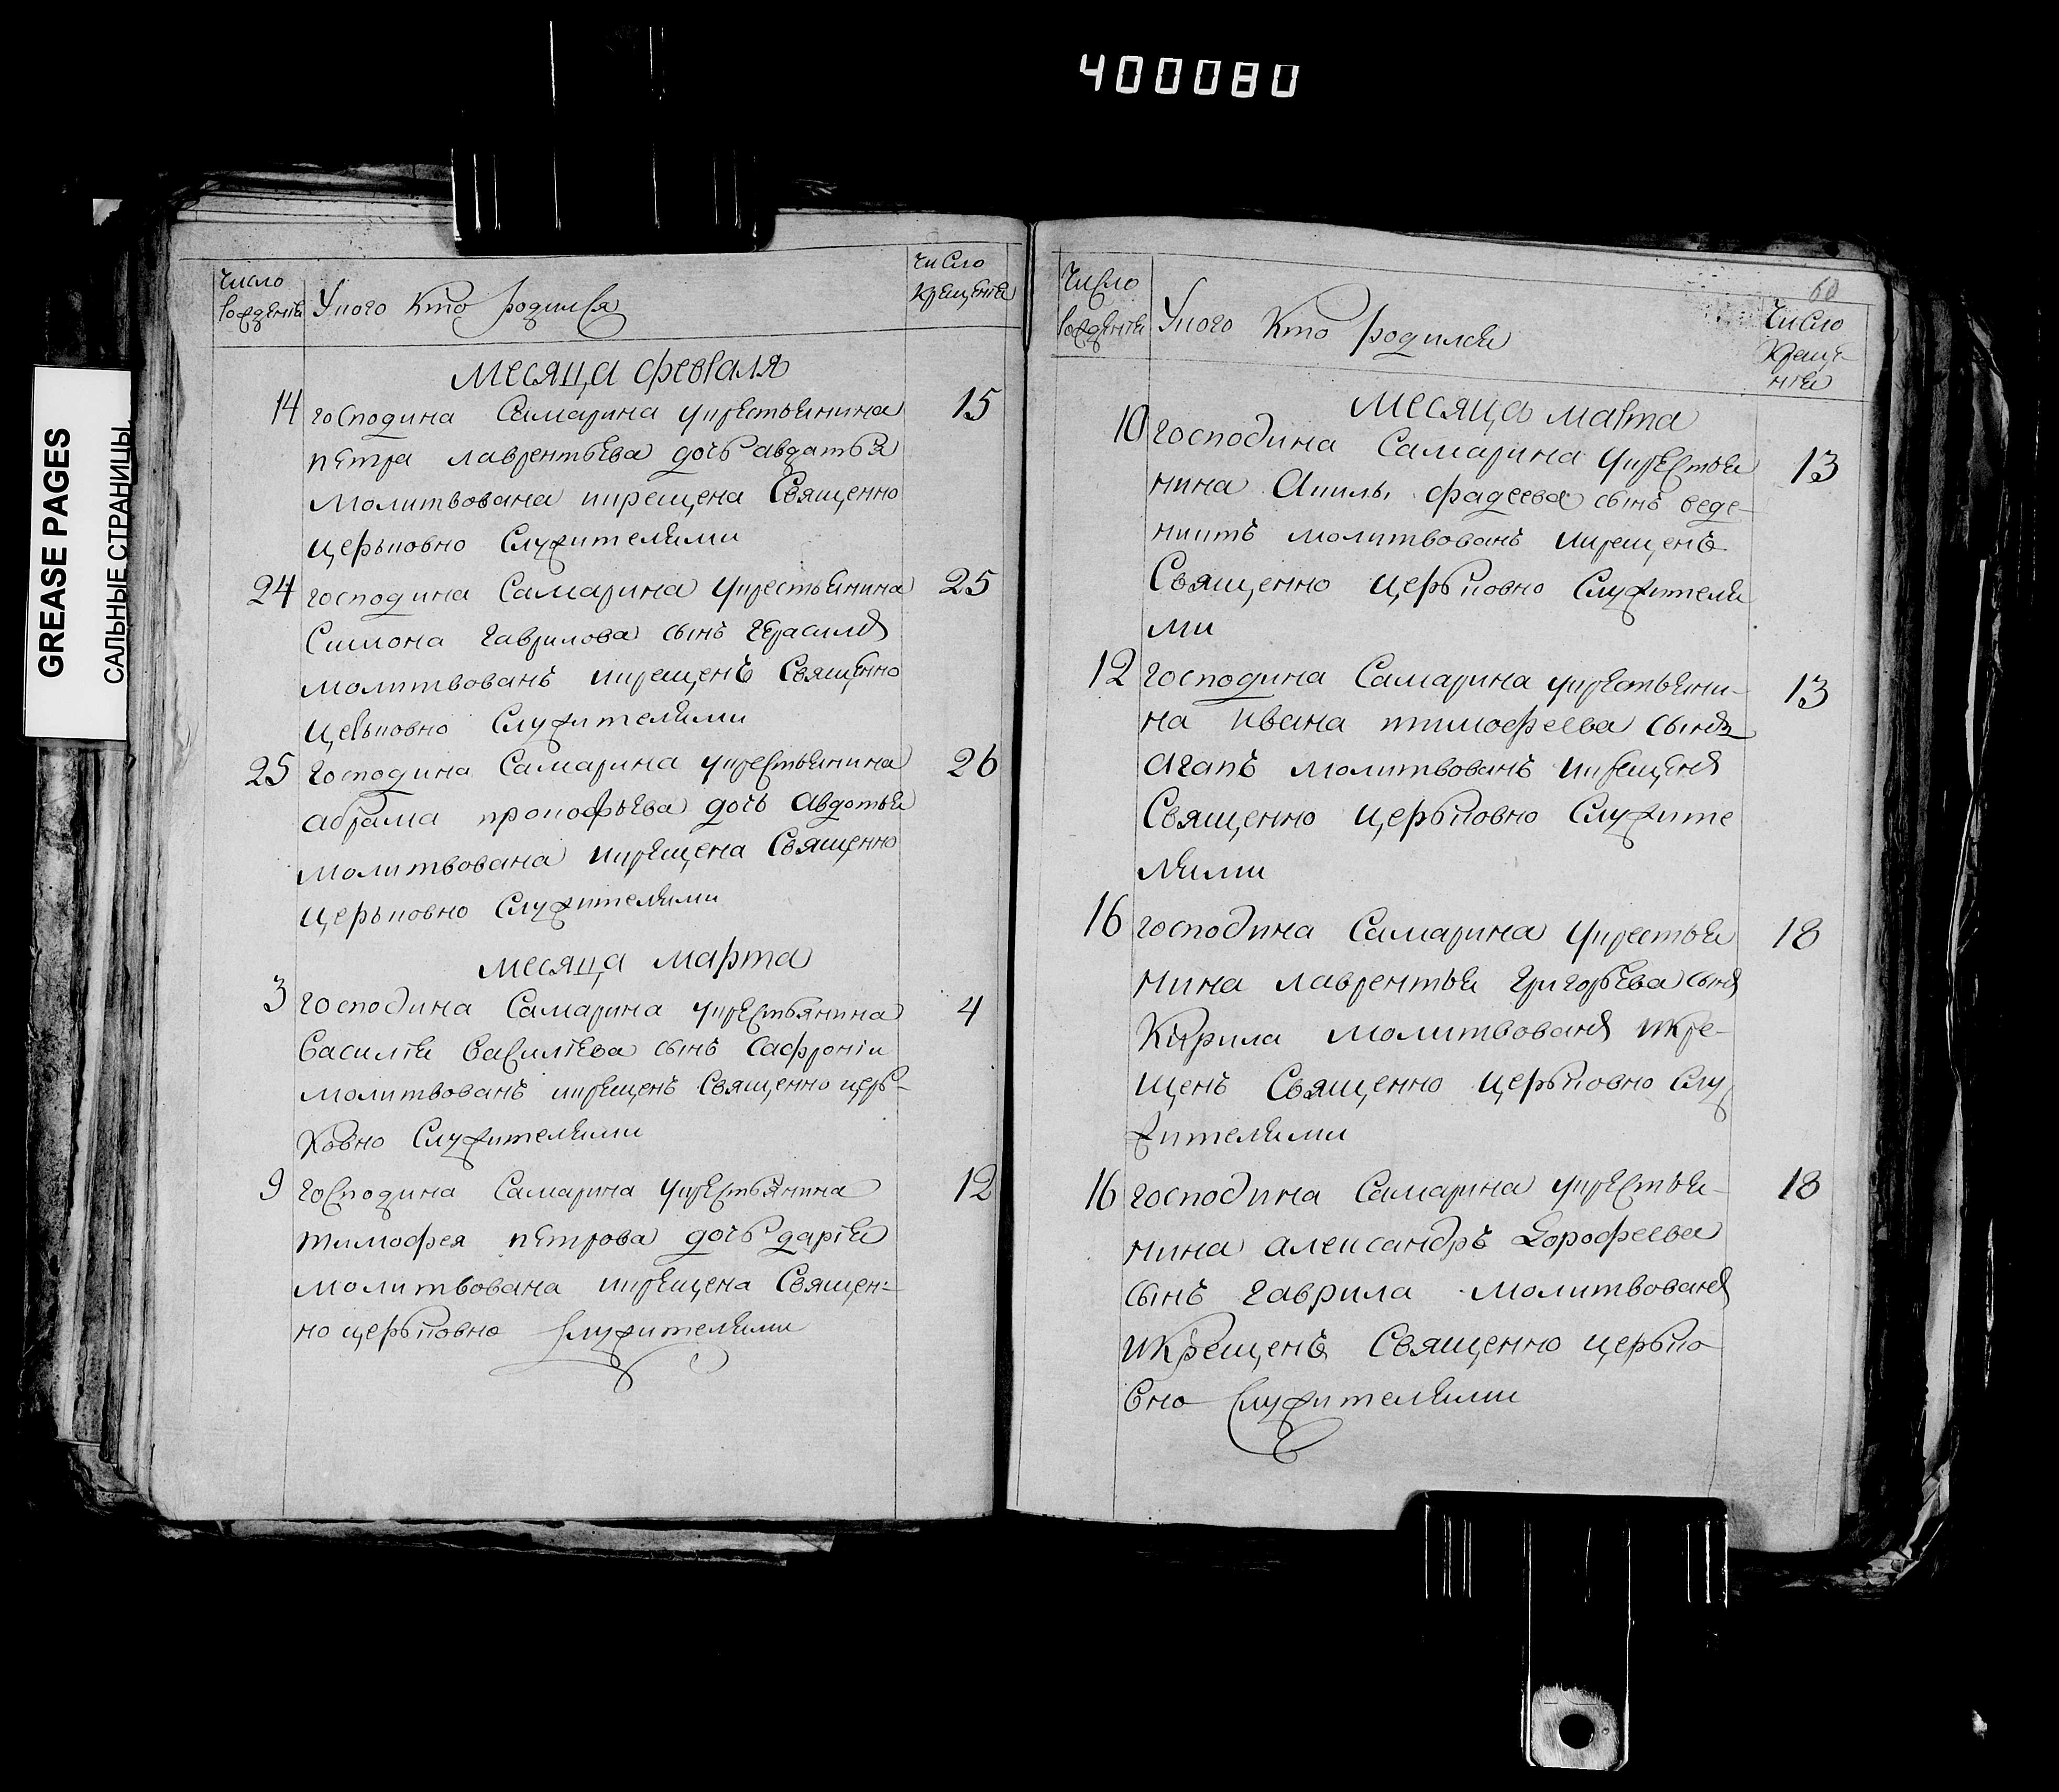 400080
GREASE PAGES
САЛЬНЫЕ СТРАНИЦЫ
Число рождения
У кого кто родился
Число крещения
месяца февраля
14 господина Самарина укрестьянина 15
петра лаврентьева дочь авдатья
молитвована икрещена Священно
церьковно Служителями
24 господина Самарина укрестьянина 25
Симона гаврилова сынъ герасимъ
молитвованъ икрещенъ Священно
церьковно Служителями
25 господина Самарина укрестьянина 26
абрама прокофьева дочь Авдотья
молитвована икрещена Священно
церьковно Служителями
месяца марта
3 господина Самарина укрестьянина 4
Василия василиева сынъ Сафроніи
молитвованъ икрещенъ Священно церь-
ковно Служителями
9 господина Самарина укрестьянина 12
тимофея петрова дочь дарія
молитвована икрещена Священ-
но церьковно Служителями
60
Число рождения
У кого кто родился
Число крещения
месяца марта
10 господина Самарина укрестья 13
нина Акилы фадеева сынъ веде-
никтъ молитвованъ икрещенъ
Священно церьковно Служителя
ми
12 господина Самарина укрестьяни- 13
на ивана тимофеева сынъ
Агапъ молитвованъ икрещенъ
Священно церьковно Служите
лями
16 господина Самарина укрестья 18
нина лаврентья григорьева сынъ
Кирила молитвованъ икре-
щенъ Священно церьковно Слу
жителями
16 господина Самарина укрестья- 18
нина александръ Дорофеева
сынъ гаврила молитвованъ
икрещенъ Священно церько
вно Служителями